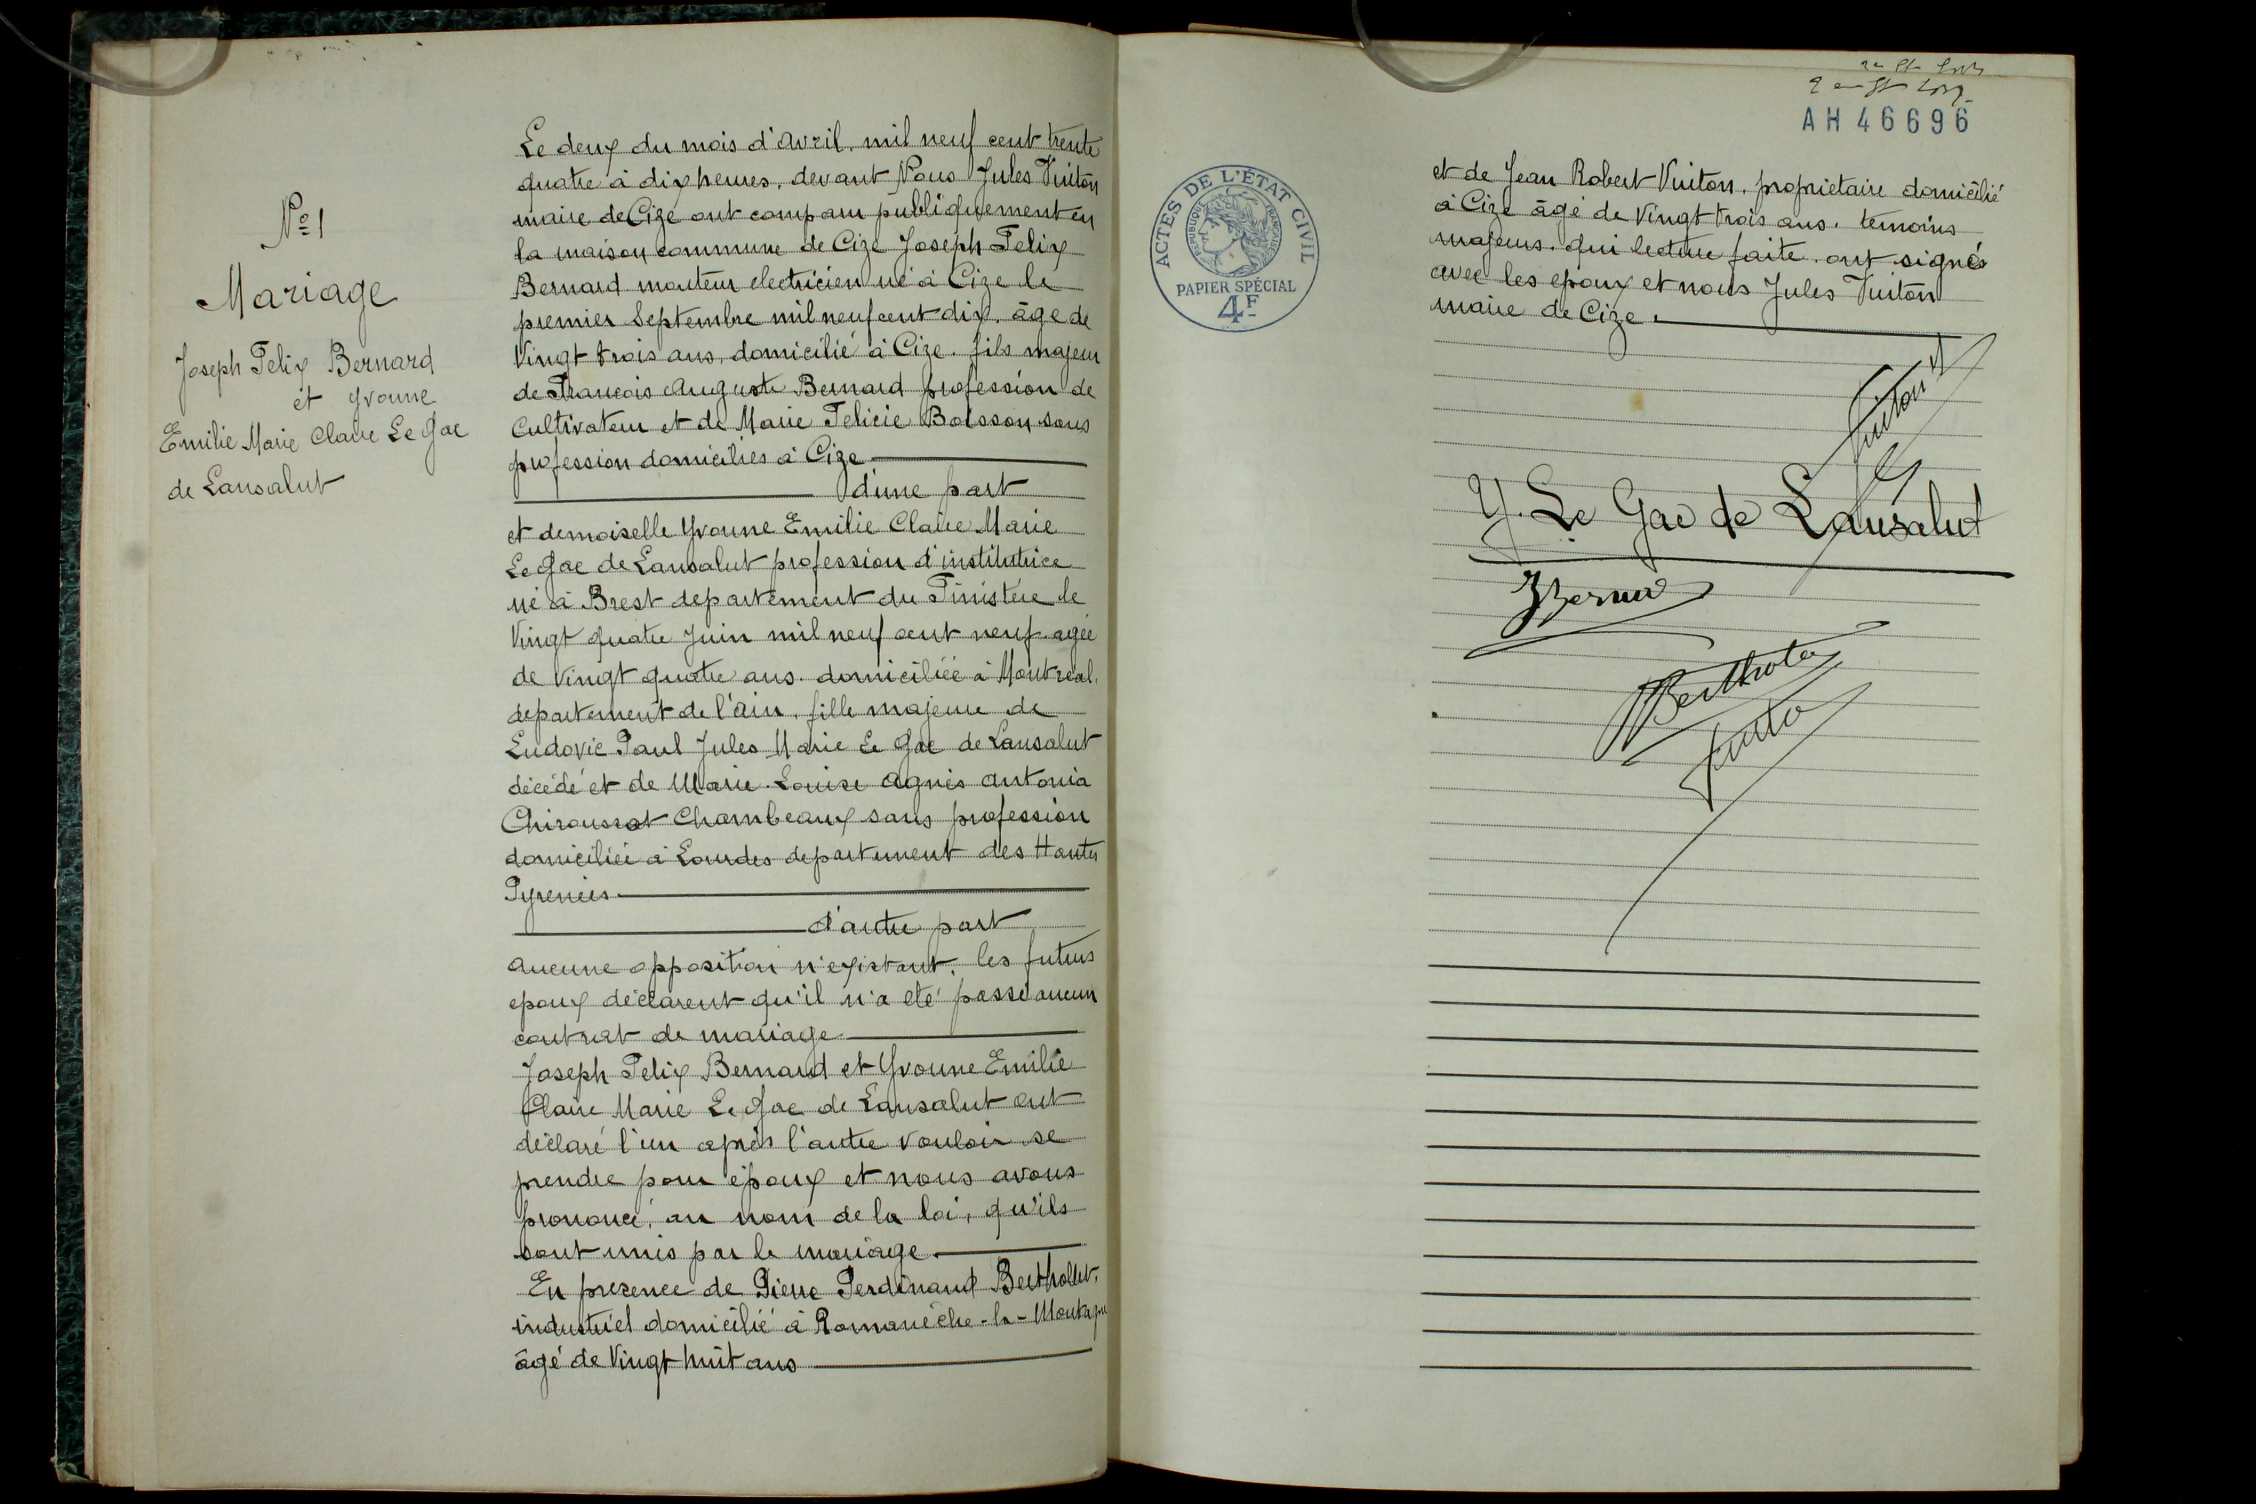 Nº 1
Mariage
Joseph Felix Bernard
et Yvonne
Emilie Marie Claire Le Gac
de Lansalut
Le deux du mois d'avril. mil neuf cent trente
quatre à dix heures, devant Nous Jules Vuiton
maire de Cize ont comparu publiquement en
la maison commune de Cize Joseph Felix
Bernard monteur electricien né à Cize le
premier Septembre mil neuf cent dix. âgé de
Vingt trois ans, domicilié à Cize. fils majeur
de Francois Auguste Bernard profession de
Cultivateur et de Marie Felicie Boisson sans
profession domiciliés à Cize
d'une part
et demoiselle Yvonne Emilie Claire Marie
Le Gac de Lansalut profession d'institutrice
né à Brest departement du Finistère le
Vingt quatre Juin mil neuf cent neuf agée
de Vingt quatre ans. domiciliée à Montreal.
departement de l'ain. fille majeure de
Ludovic Paul Jules Marie Le Gac de Lansalut
décédé et de Marie Louise agnès antonia
Chiroussot Chambeaux sans profession
domiciliée à Lourdes departement des Hautes
Pyrenées
d'autre part
aucune opposition n'existant. les futurs
epoux déclarent qu'il n'a été passé aucun
contrat de mariage
Joseph Felix Bernard et Yvonne Emilie
Claire Marie Le Gac de Lansalut ont
déclaré l'un après l'autre vouloir se
prendre pour époux et nous avons
prononcé, au nom de la loi, qu'ils
sont unis par le mariage.
En presence de Pierre Ferdinand Berthollet,
industriel domicilié à Romanèche-la-Montagne
âgé de Vingt huit ans
AH 46696
ACTES DE L'ÉTAT CIVIL
RÉPUBLIQUE FRANÇAISE
PAPIER SPÉCIAL
4F
et de Jean Robert Vuiton. proprietaire domicilié
à Cize âgé de Vingt trois ans. temoins
majeurs. qui lecture faite. ont signés
avec les epoux et nous Jules Vuiton
maire de Cize.
Vuiton
Y. Le Gac de Lansalut
JBernard
Berthollet
Vuiton